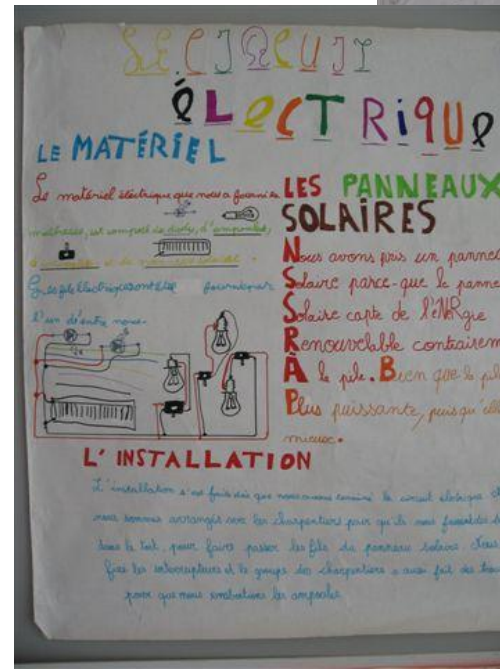 LE CIRCUIT
ÉLECTRIQUE
LE MATÉRIEL
Le matériel électrique que nous a fourni la
maîtresse, est composé de diode, d'ampoules,
Les fils électriques ont été fournis par
l'un d'entre nous.
LES PANNEAUX
SOLAIRES
Nous avons pris un pannea
Solaire parce-que le panne
Solaire capte de l'éNRgie
Renouvelable contrairem
À la pile. Bien que la pile
Plus puissante, puisqu'elle
mieux.
L'INSTALLATION
L'installation s'est faite dès que nous avons terminé le circuit éléctrique.
nous sommes arrangés avec les charpentiers pour qu'ils nous
dans le toit, pour faire passer les fils du panneau solaire. Nous
fixé les interrupteurs et le groupe des charpentiers a aussi fait des
pour que nous emboitions les ampoules